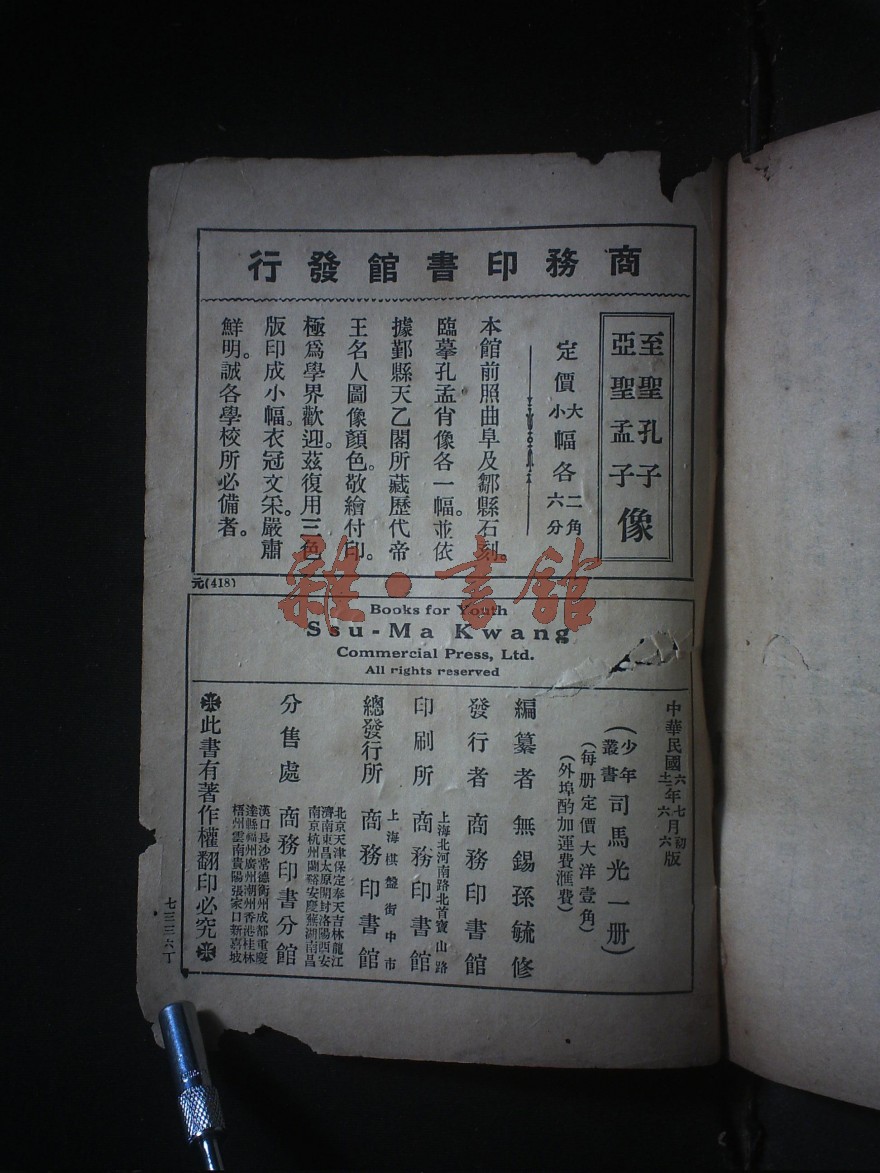 商務印書館發行
至聖孔子
亞聖孟子
像
定價大幅各二角
小六分
本館前照曲阜及鄒縣石刻。
臨摹孔孟肖像各一幅。並依
據鄞縣天乙閣所藏歷代帝
王名人圖像顏色。敬繪付印。
極爲學界歡迎。茲復用三色
版印成小幅。衣冠文采。嚴肅
鮮明。誠各學校所必備者。
元(418)
雜·書館
Books for Youth
Ssu-Ma Kwang
Commercial Press, Ltd.
All rights reserved
中華民國六年七月初
十二年六月六版
(少年叢書司馬光一册)
(每册定價大洋壹角)
(外埠酌加運費滙費)
編纂者 無錫孫毓修
發行者 商務印書館
上海北河南路北首寶山路
印刷所 商務印書館
上海棋盤街中市
總發行所 商務印書館
北京天津保定奉天吉林龍江
濟南東昌太原開封洛陽西安
南京杭州蘭谿安慶蕪湖南昌
分售處 商務印書分館
漢口長沙常德衡州成都重慶
達縣福州廣州潮州香港桂林
梧州雲南貴陽張家口新嘉坡
此書有著作權翻印必究
七三三六丁